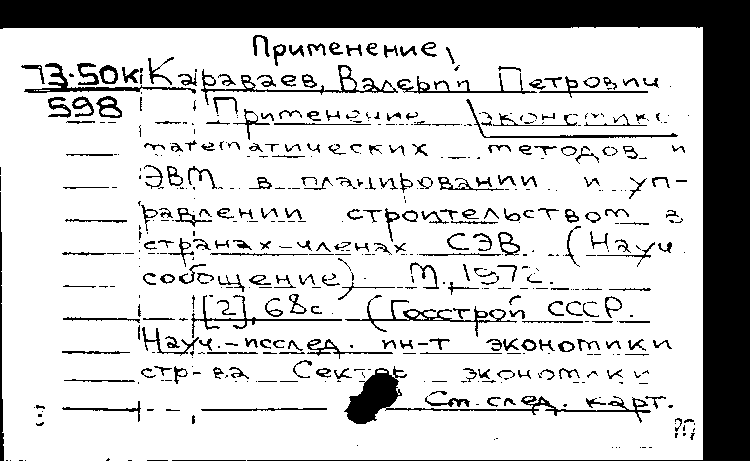 Применение
73-50к Караваев, Валерий Петрович
598 Применение экономико
математических методов и
ЭВМ в планировании и уп-
равлении строительством в
странах-членах СЭВ. (Науч
сообщение). М., 1972.
[2], 68с. (Госстрой СССР.
Науч.-исслед. ин-т экономики
стр-ва Сектор экономики
См. след. карт.